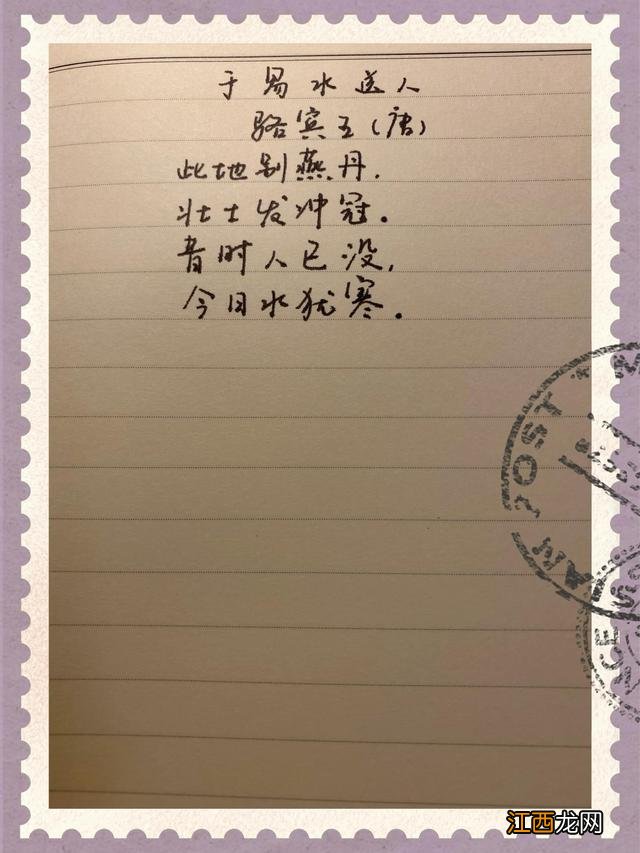 于易水送人
骆宾王(唐)
此地别燕丹.
壮士发冲冠.
昔时人已没,
今日水犹寒.
POST
江西龙网